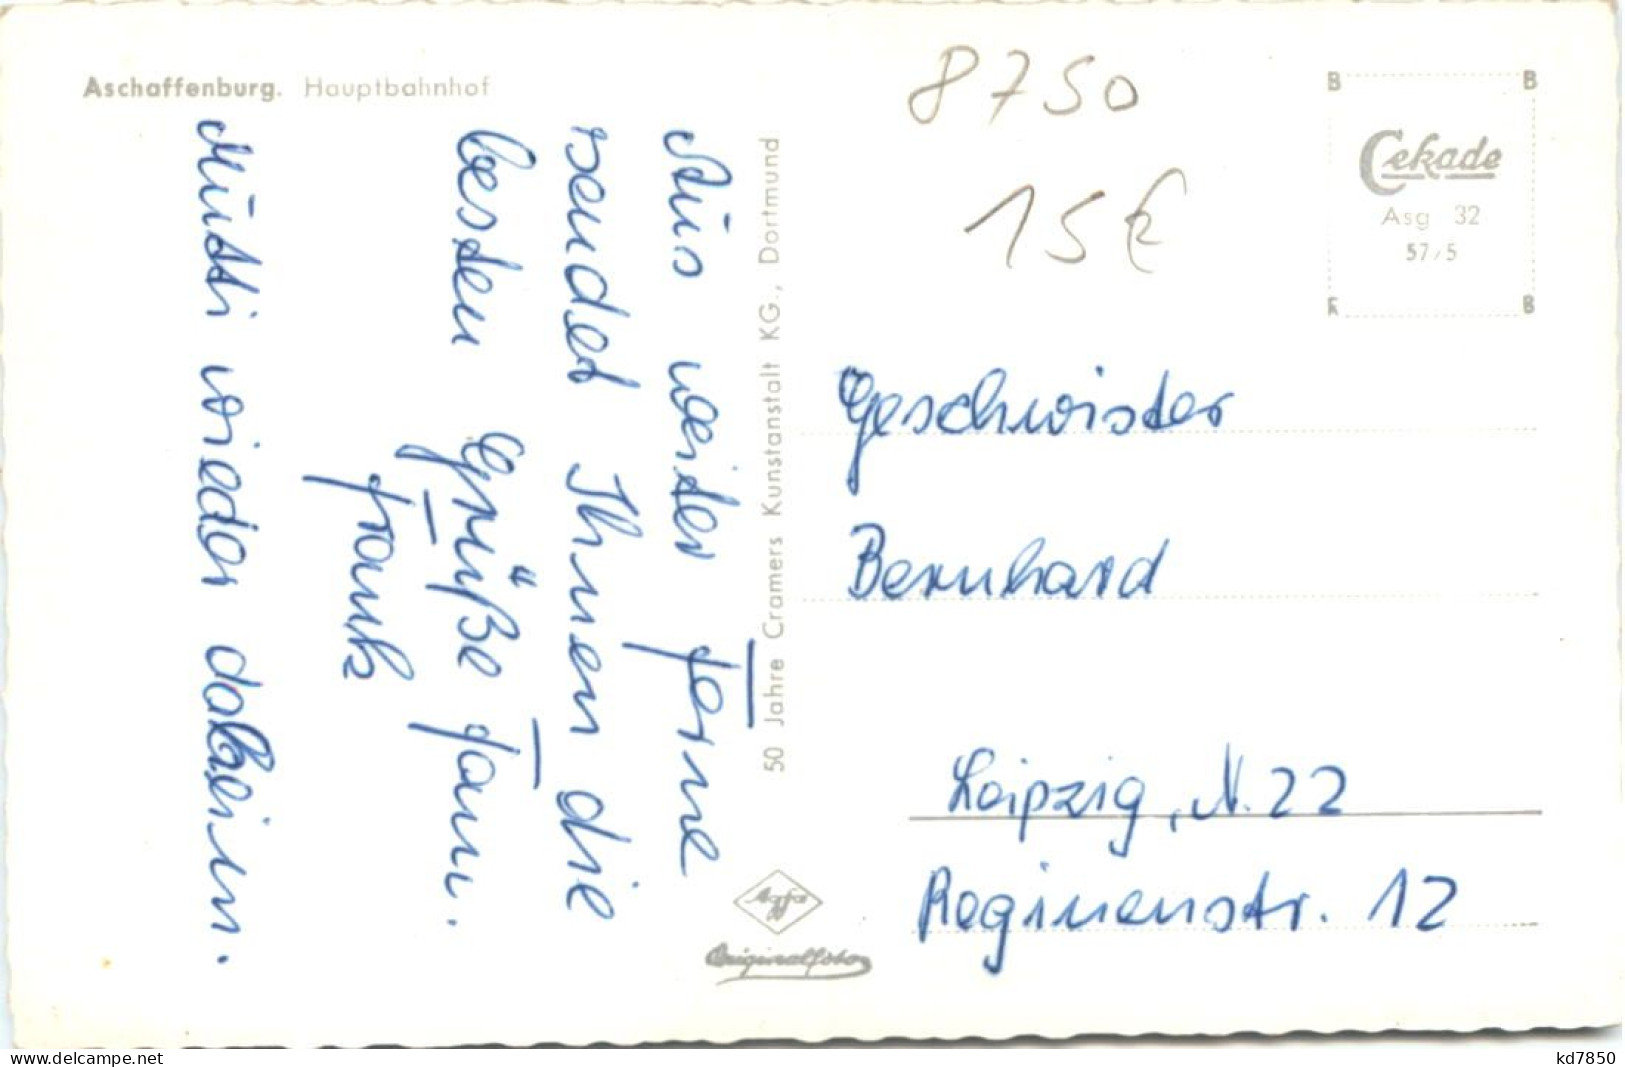 Aschaffenburg. Hauptbahnhof
Aus weiter Ferne
sendet Ihnen die
besten Grüße Fam.
Frank
Mutti wieder daheim.
50 Jahre Cramers Kunstanstalt KG., Dortmund
Agfa
Originalfoto
8750
15€
B B
Cekade
Asg 32
57/5
K B
Geschwister
Bernhard
Leipzig, N. 22
Reginenstr. 12
www.delcampe.net
kd7850